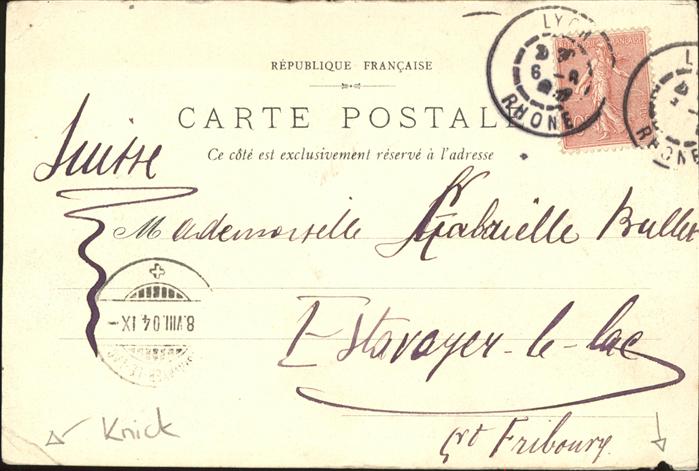 LYON
RHONE
RÉPUBLIQUE FRANÇAISE
CARTE POSTALE
Ce côté est exclusivement réservé à l'adresse
Suisse
Mademoiselle Gabrielle Bullet
8.VIII.04.IX-
Estavayer-le-lac
Ct Fribourg
Knick